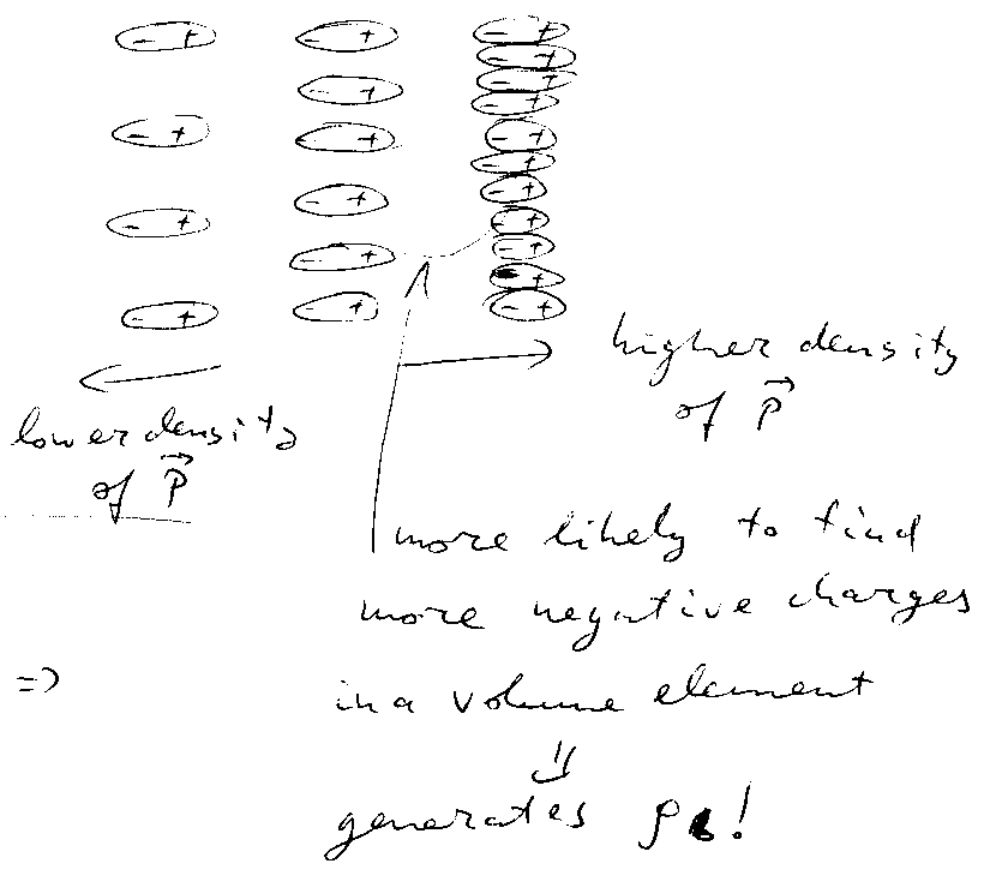 - + - + - +
- +
- + - +
- +
- + - + - +
- +
- + - +
- + - +
- + - +
- + +
- + - + - +
higher density
of p⃗
lower density
of p⃗
more likely to find
more negative charges
=> in a volume element
⇓
generates ρb!